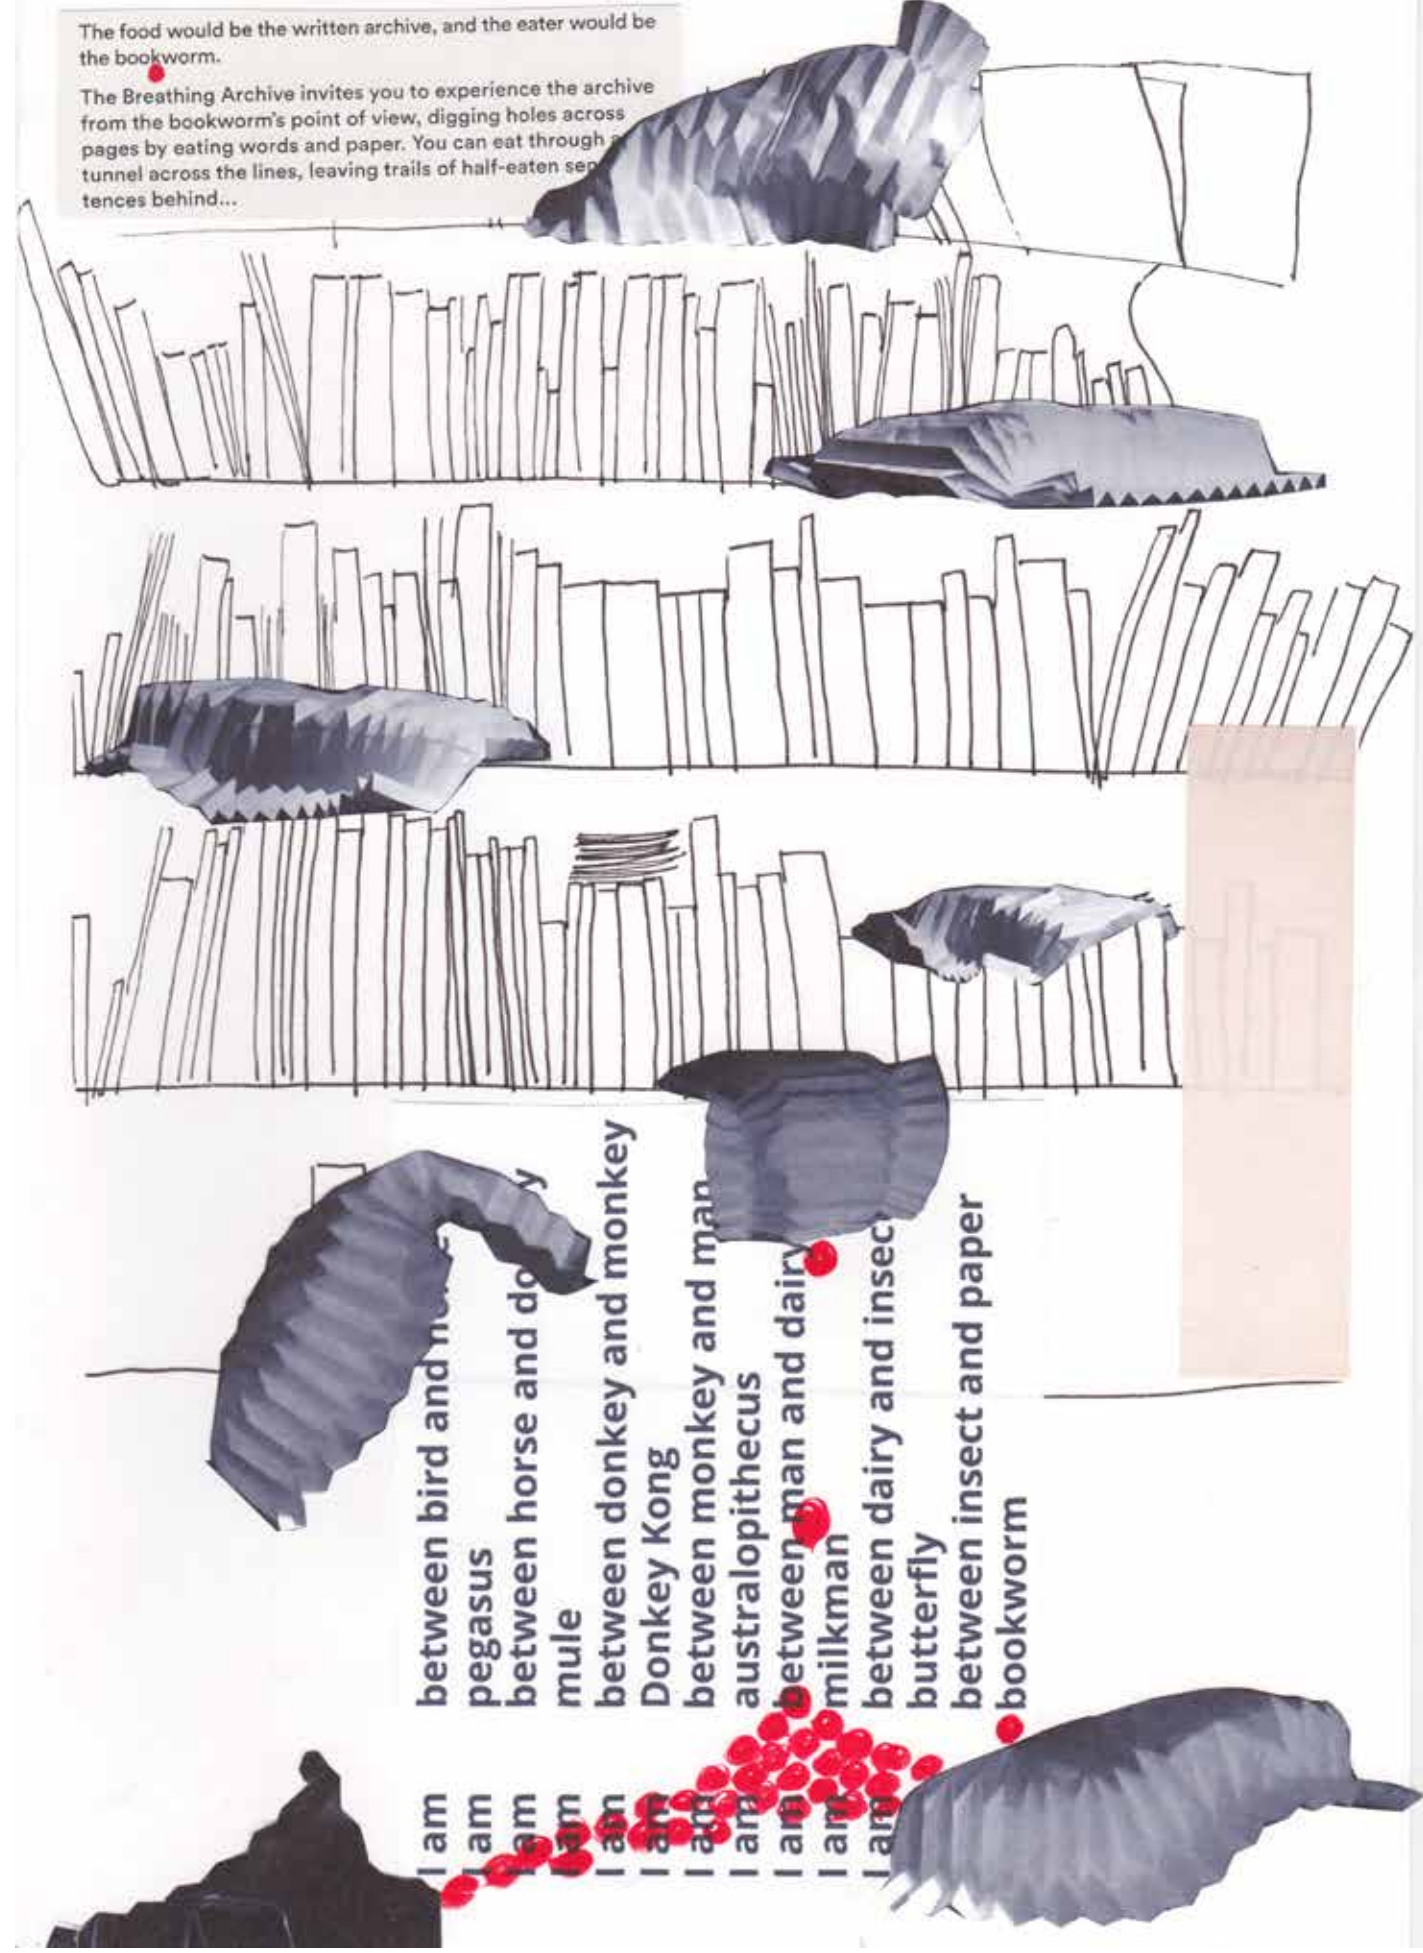 The food would be the written archive, and the eater would be
the bookworm.
The Breathing Archive invites you to experience the archive
from the bookworm's point of view, digging holes across
pages by eating words and paper. You can eat through a
tunnel across the lines, leaving trails of half-eaten sen
tences behind...
I am between bird and
I am pegasus
I am between horse and
I am mule
I am between donkey and monkey
I am Donkey Kong
I am between monkey and man
I am australopithecus
I am between man and dairy
I am milkman
I am between dairy and insec
butterfly
between insect and paper
bookworm